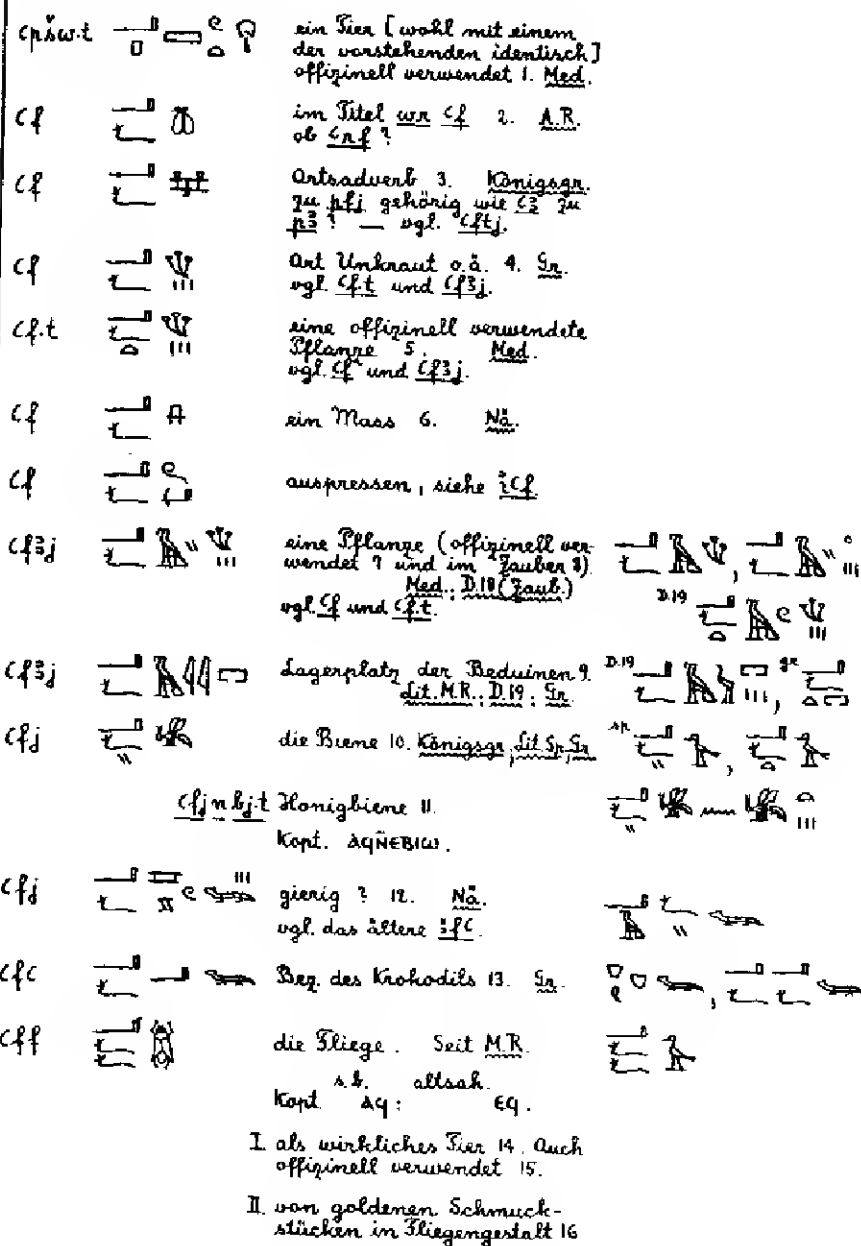 ꜥpšw.t ein Tier [wohl mit einem
der vorstehenden identisch]
offizinell verwendet 1. Med.
ꜥf im Titel wr ꜥf 2. A.R.
ob ꜥnf ?
ꜥf Ortsadverb 3. Königsgr.
zu pfj gehörig wie ꜥꜣ zu
pꜣ ? — vgl. ꜥftj.
ꜥf Art Unkraut o.ä. 4. Gr.
vgl. ꜥf.t und ꜥfꜣj.
ꜥf.t eine offizinell verwendete
Pflanze 5. Med.
vgl. ꜥf und ꜥfꜣj.
ꜥf ein Mass 6. Nä.
ꜥf auspressen, siehe iꜥf
ꜥfꜣj eine Pflanze (offizinell ver-
wendet 7 und im Zauber 8)
Med.; D.18 (Zaub.)
vgl. ꜥf und ꜥf.t. D.19
ꜥfꜣj Lagerplatz der Beduinen 9. D.19 gr
Lit. M.R.; D.19; Gr.
ꜥfj die Biene 10. Königsgr; Lit. Sp; Gr sp.
ꜥfj n bj.t Honigbiene 11.
Kopt. ⲁϥⲛ̄ⲉⲃⲓⲱ.
ꜥfj gierig ? 12. Nä.
vgl. das ältere ꜣfꜥ.
ꜥfꜥ Bez. des Krokodils 13. Gr.
ꜥff die Fliege. Seit M.R.
s.b. altsah.
Kopt ⲁϥ: ⲉϥ.
I. als wirkliches Tier 14. Auch
offizinell verwendet 15.
II. von goldenen Schmuck-
stücken in Fliegengestalt 16